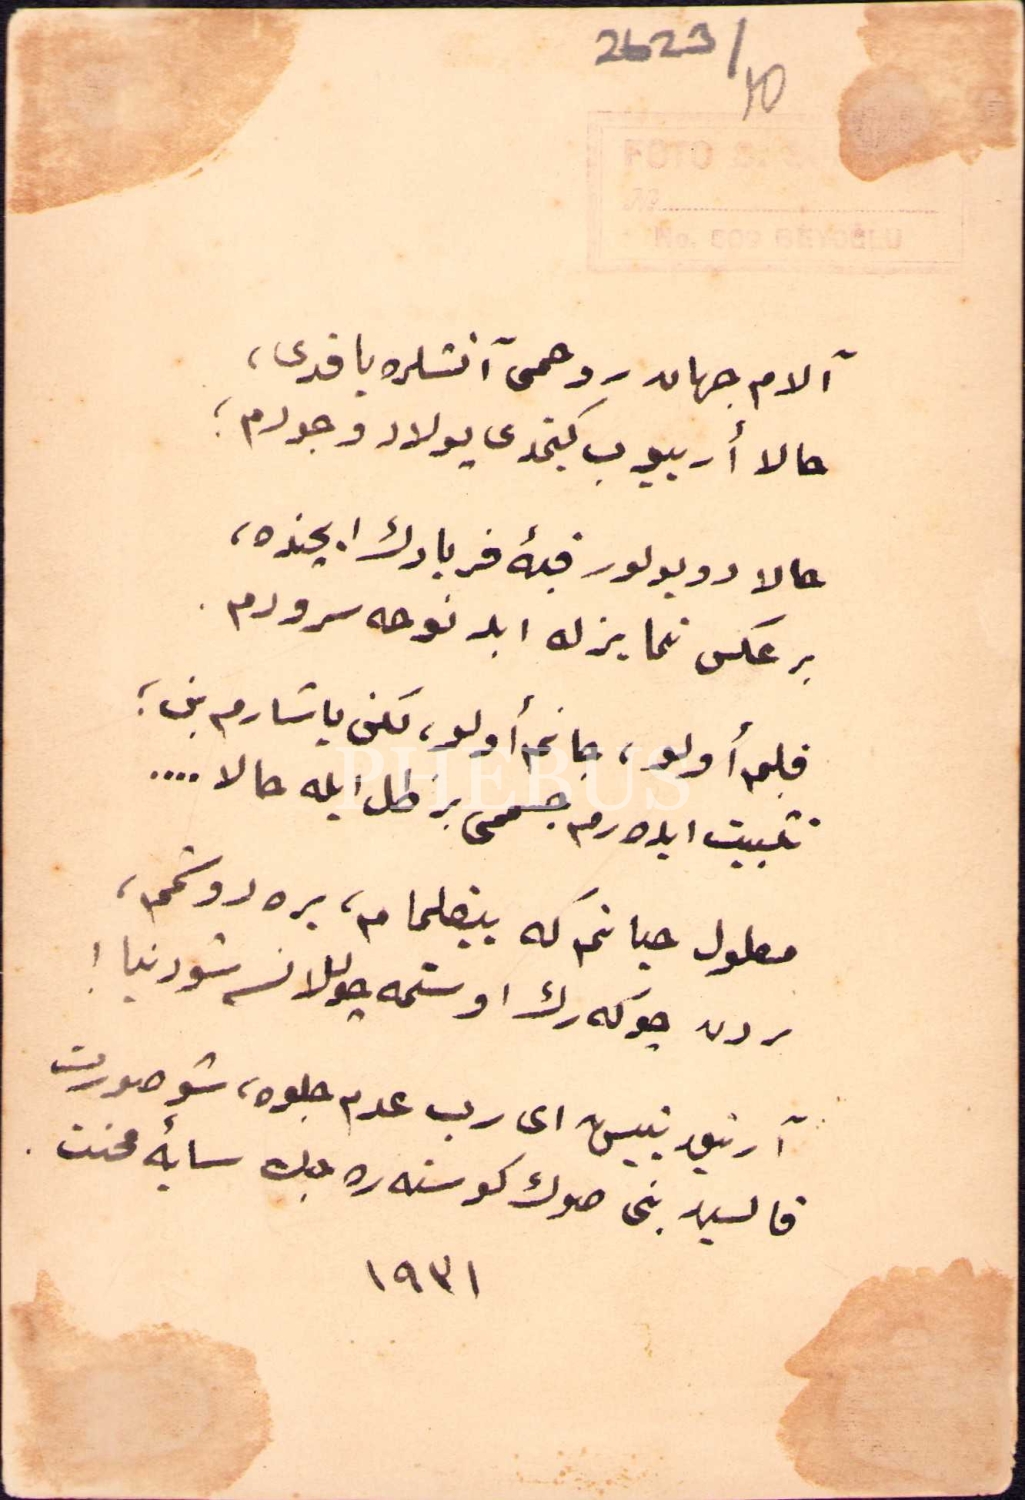 2623/
10
FOTO
No. 509 BEYOĞLU
آلام جهان روحمی آتشلره یاقدی،
حالا أرییوب کیتمدی پولاد وجودم؛
حالا دویولور قبۀ فریادك ایچنده،
بر عکس نما یزله ایله نوحه سرودم.
قلبم أولو، جانم أولو، لکن یاشارم بن؛
تثبیت ایده رم جسممی بر ظل ایله حالا ....
معلول حیاتم که ییقلمام، یره دوشمم،
بردن چوکه رك اوستمه چوللانسه شو دنیا!
آرتیق نییس ای رب عدم جلوه، شو صورت
قالسین بنی صوك کوستره جك سایۀ محنت.
١٩٣١
PHEBUS